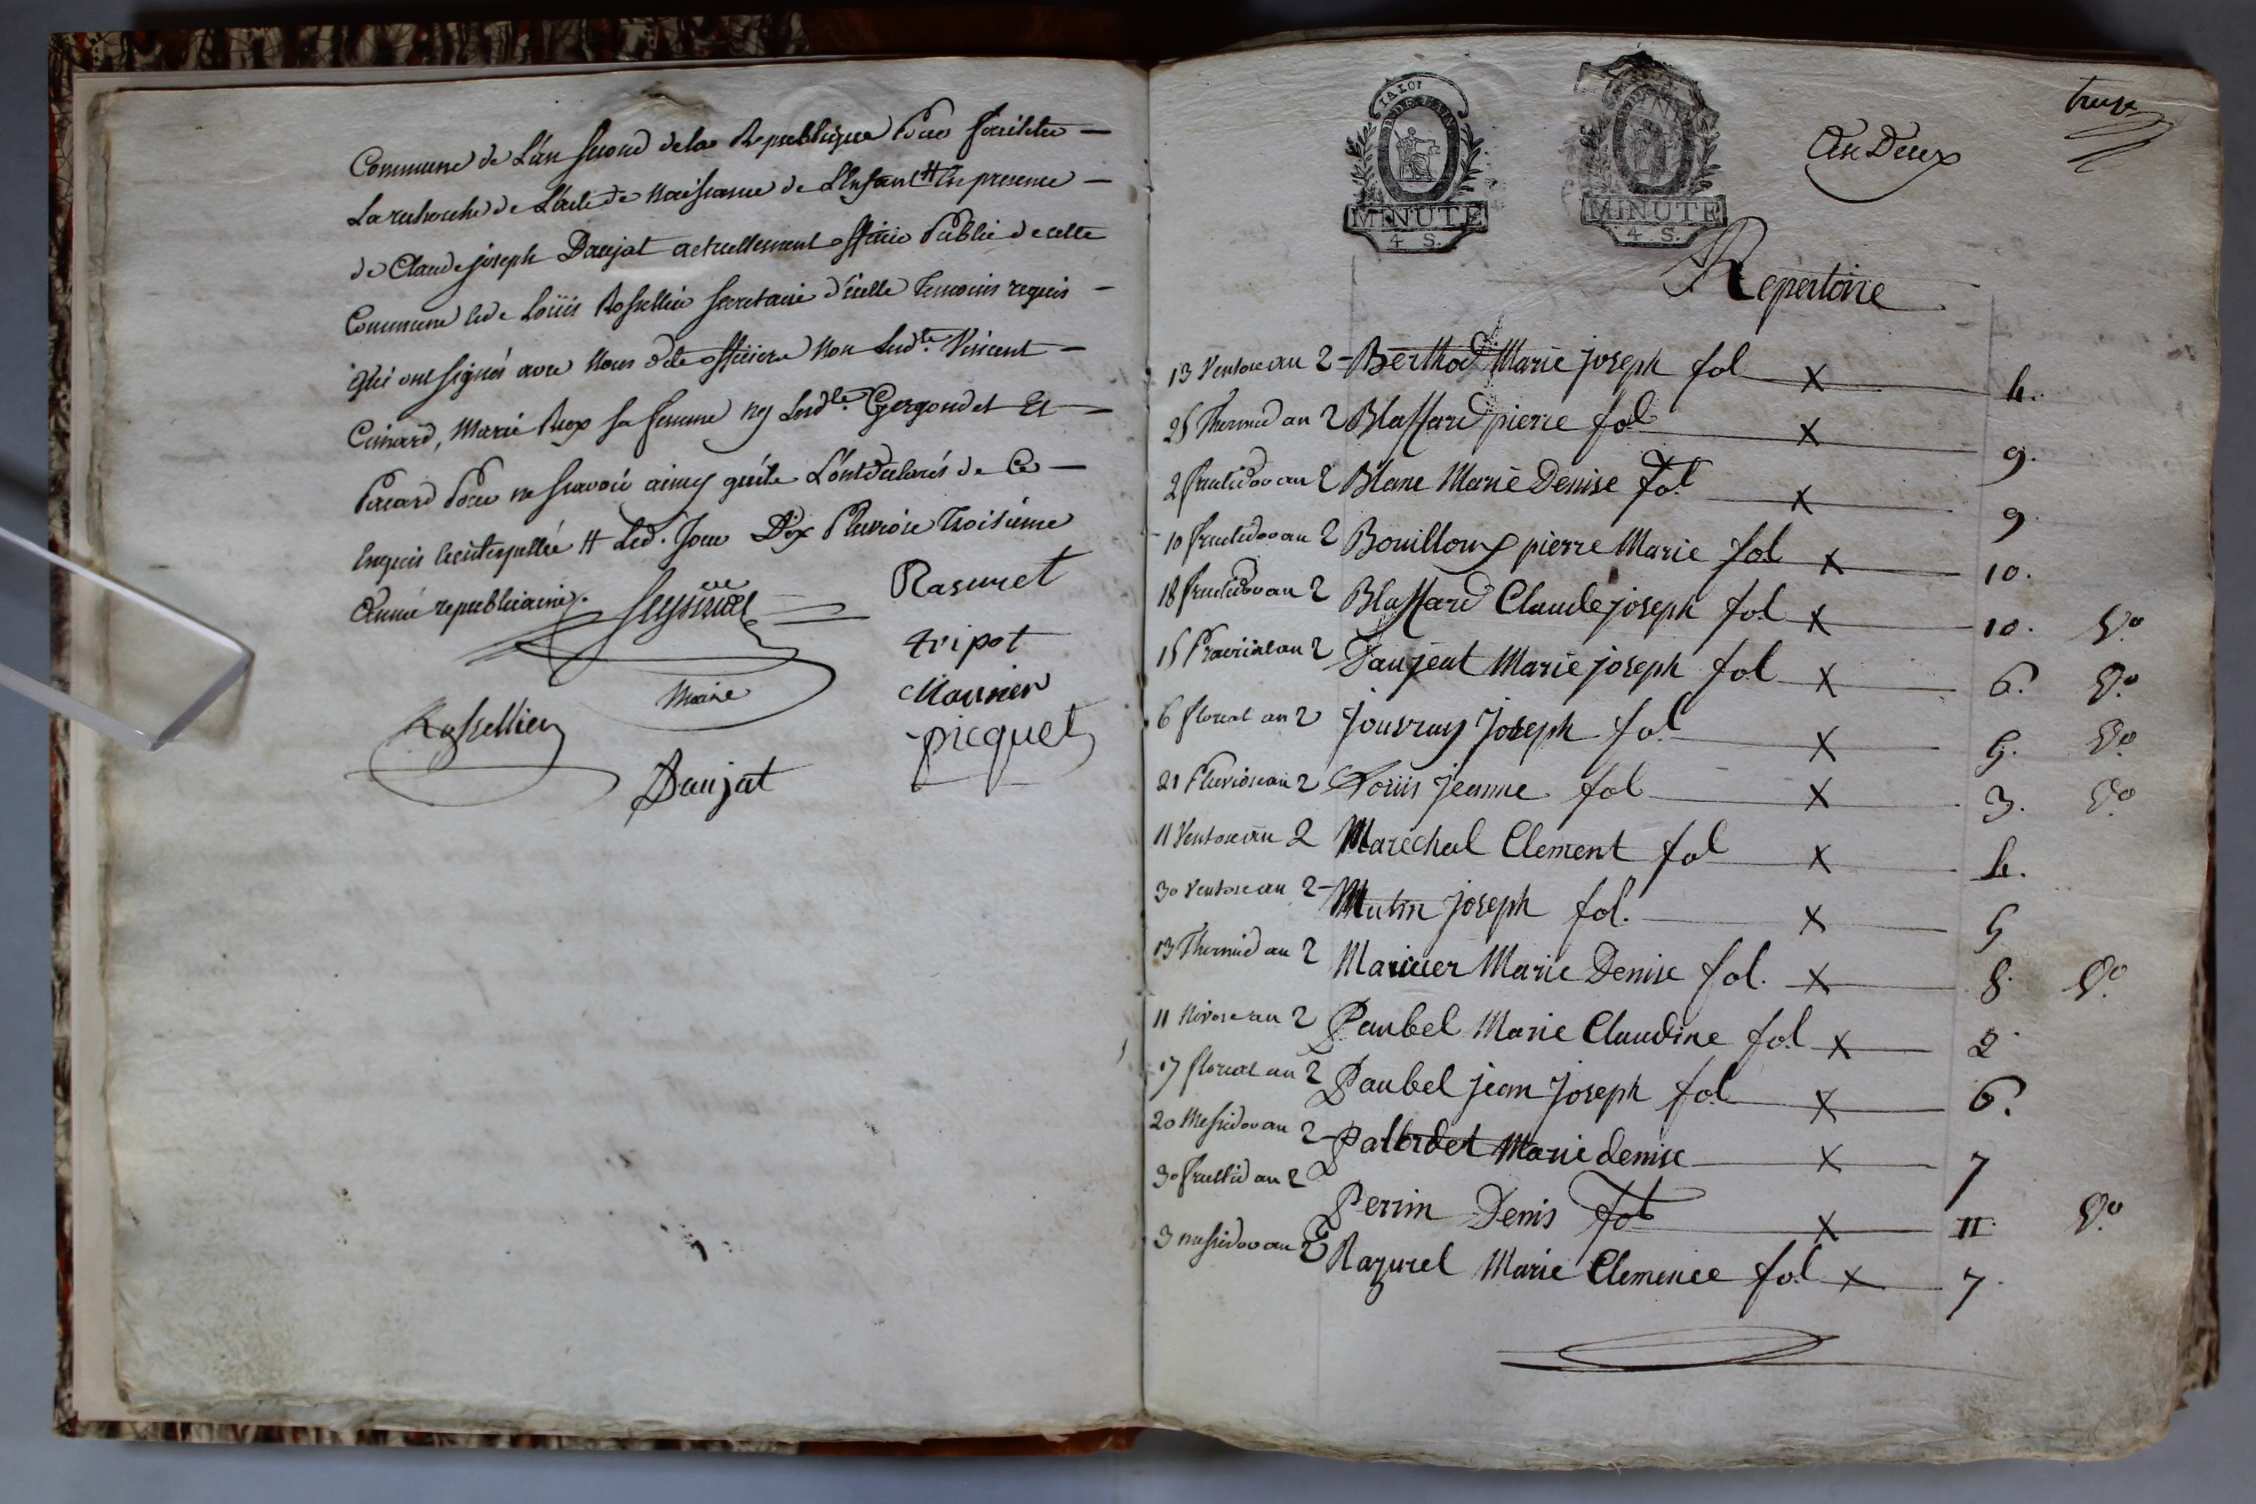 Commune de L'an Second de la Republique Pour faciliter —
La recherche de L'acte de Naissance de L'Enfant H En presence —
de Claude joseph Daujat actuellement officier Public de cette
Commune et de Loüis Rossellier Secretaire d'icelle Temoins requis —
qui ont signés avec Nous dt officiers Non Led.te Vincent —
Cunard, Marie Rox sa femme Ny Lesd.te Gergondet Et —
Pacard Pour ne Scavoir ainsy qu'ils L'ont declarés de Ce —
Enquis et interpellés H Led. Jour Dix Pluviose Troisieme
Année republicaine.
Rasurel
tripot
Maire
Marnier
Rossellier
picquet
Daujat
LA LOI
MINUTE
4 S.
MINUTE
4 S.
An Deux
treize
Repertoire
13 Ventose an 2 - Berthod Marie joseph fol X 4.
25 Thermid an 2 Blassard pierre fol X 9.
2 fructidor an 2 Blanc Marie Denise fol X 9.
10 fructidor an 2 Bouilloux pierre Marie fol X 10.
18 fructidor an 2 Blassard Claude joseph fol X 10. V.o
15 Prairial an 2 Daujeat Marie joseph fol X 6. V.o
6 floreal an 2 jouvray Joseph fol X 5. V.o
21 Pluviose an 2 Loüis jeanne fol X 3. V.o
11 Ventose an 2 Marechal Clement fol X 4.
30 Ventose an 2 - Mutin joseph fol. X 5
13 Thermid an 2 Marnier Marie Denise fol. X 8. V.o
11 Nivose an 2 Paubel Marie Claudine fol X 2
17 floreal an 2 Paubel jean Joseph fol X 6.
20 Messidor an 2 - Palordet Marie denise X 7
30 fructid an 2 Perrin Denis fol X 11. V.o
3 messidor an 2 Razurel Marie Clemence fol X 7.